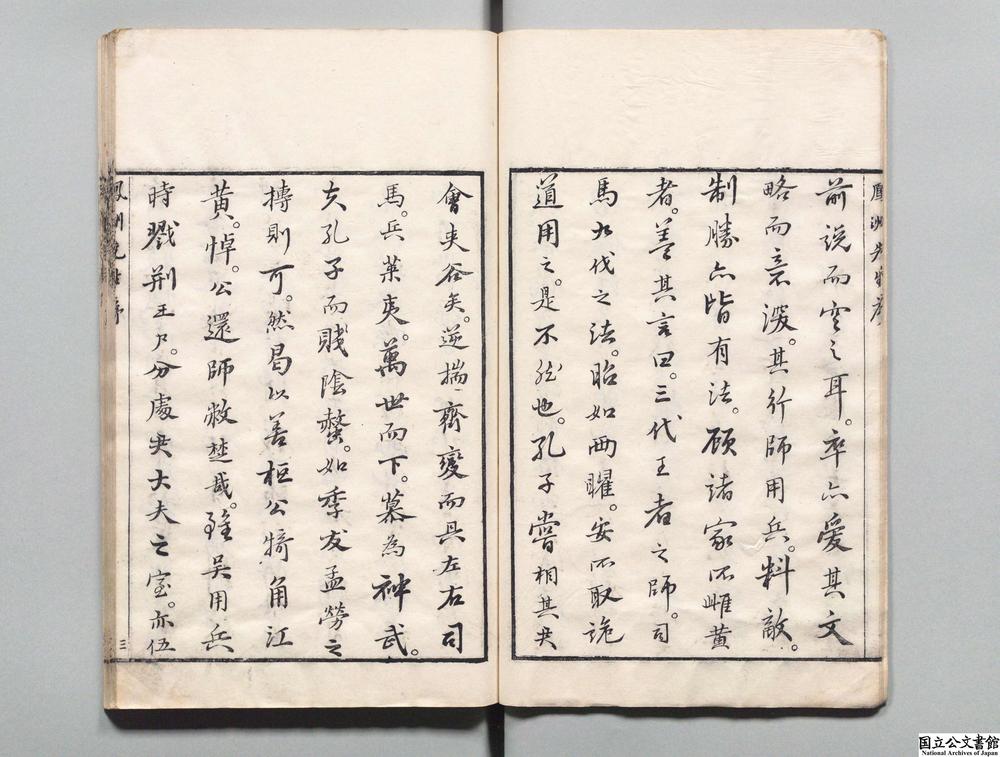 前説而空之耳。卒亦爱其文
略而意深。其行師用兵。料敵。
制勝亦皆有法。顧諸家所雌黄
者。善其言曰。三代王者之師。司
馬九伐之法。昭如兩曜。安所取詭
道用之。是不然也。孔子嘗相其君
會夾谷矣。逆揣齊變而具左右司
馬。兵萊夷。萬世而下。慕為神武。
夫孔子而賤陰螫。如季友孟勞之
摶則可。然曷以善桓公犄角江
黄。悼。公還師敝楚哉。雖吴用兵
時戮荆王尸。分處其大夫之室。亦伍
三
国立公文書館
National Archives of Japan